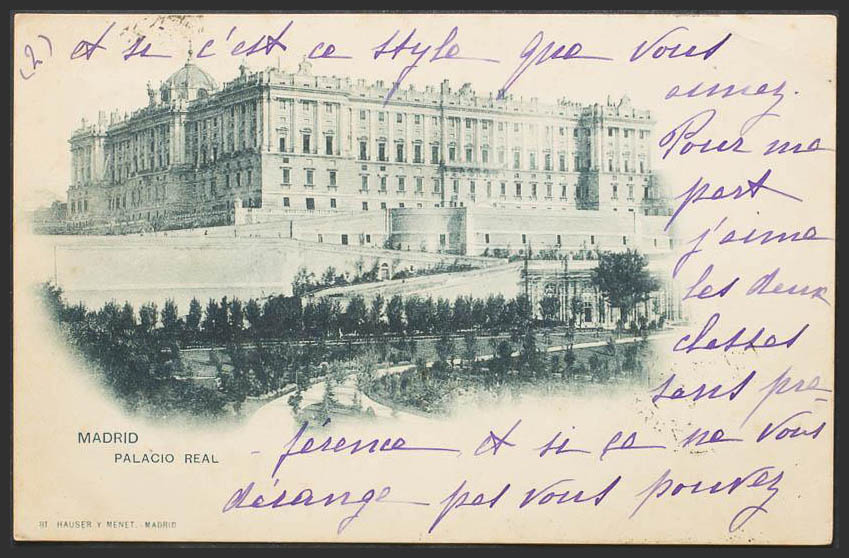 (2) et si c'est ce style que vous
aimez.
Pour ma
part
j'aime
les deux
classes
sans pré-
MADRID
PALACIO REAL
-férence et si ça ne vous
dérange pas vous pouvez
HAUSER Y MENET.-MADRID